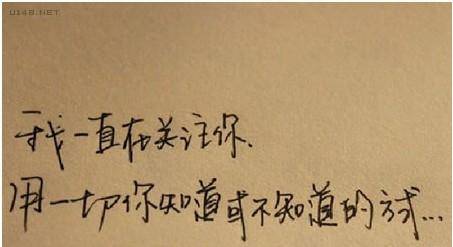 U148.NET
我一直在关注你.
用一切你知道或不知道的方式...